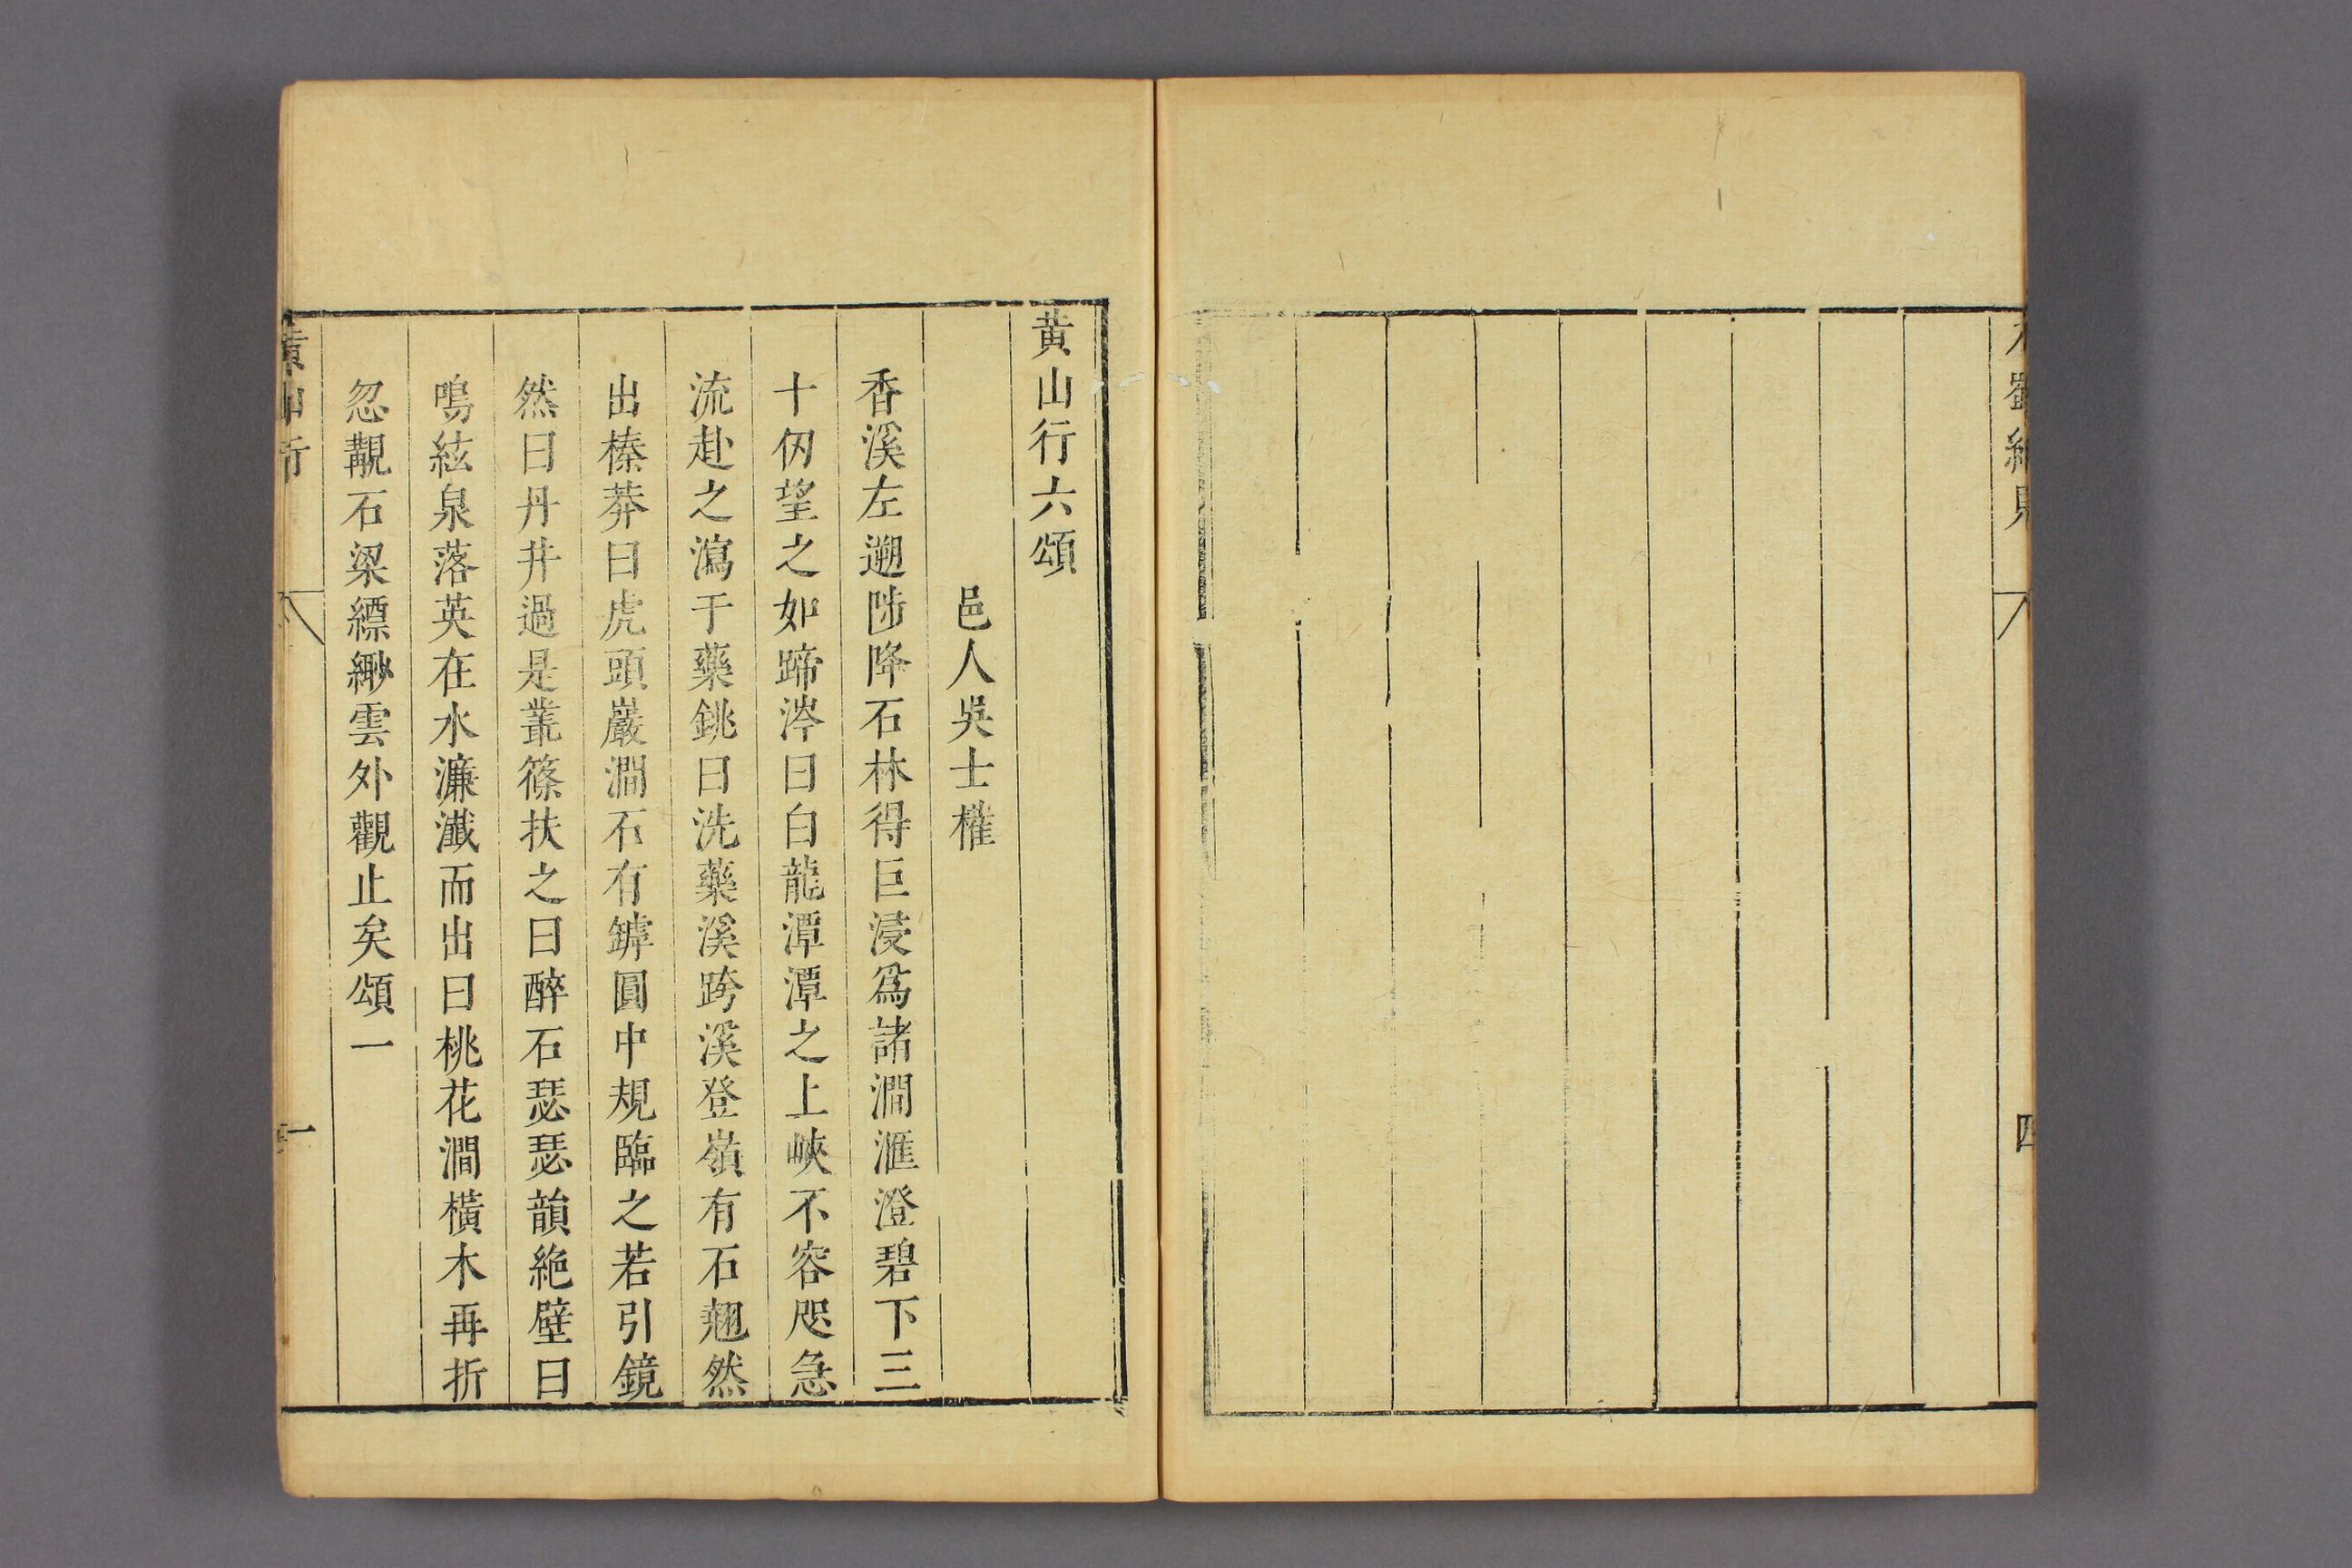 四
黄山行六頌
邑人吳士權
香溪左遡陟降石林得巨浸爲諸澗滙澄碧下三
十仭望之如蹄涔曰白龍潭潭之上峽不容咫急
流赴之瀉于藥銚曰洗藥溪跨溪登嶺有石翹然
出榛莽曰虎頭巖澗石有罅圓中規臨之若引鏡
然曰丹井過是叢篠扶之曰醉石瑟瑟韻絶壁曰
鳴絃泉落英在水濂瀐而出曰桃花澗橫木再折
忽覯石梁縹緲雲外觀止矣頌一
黃山行
一